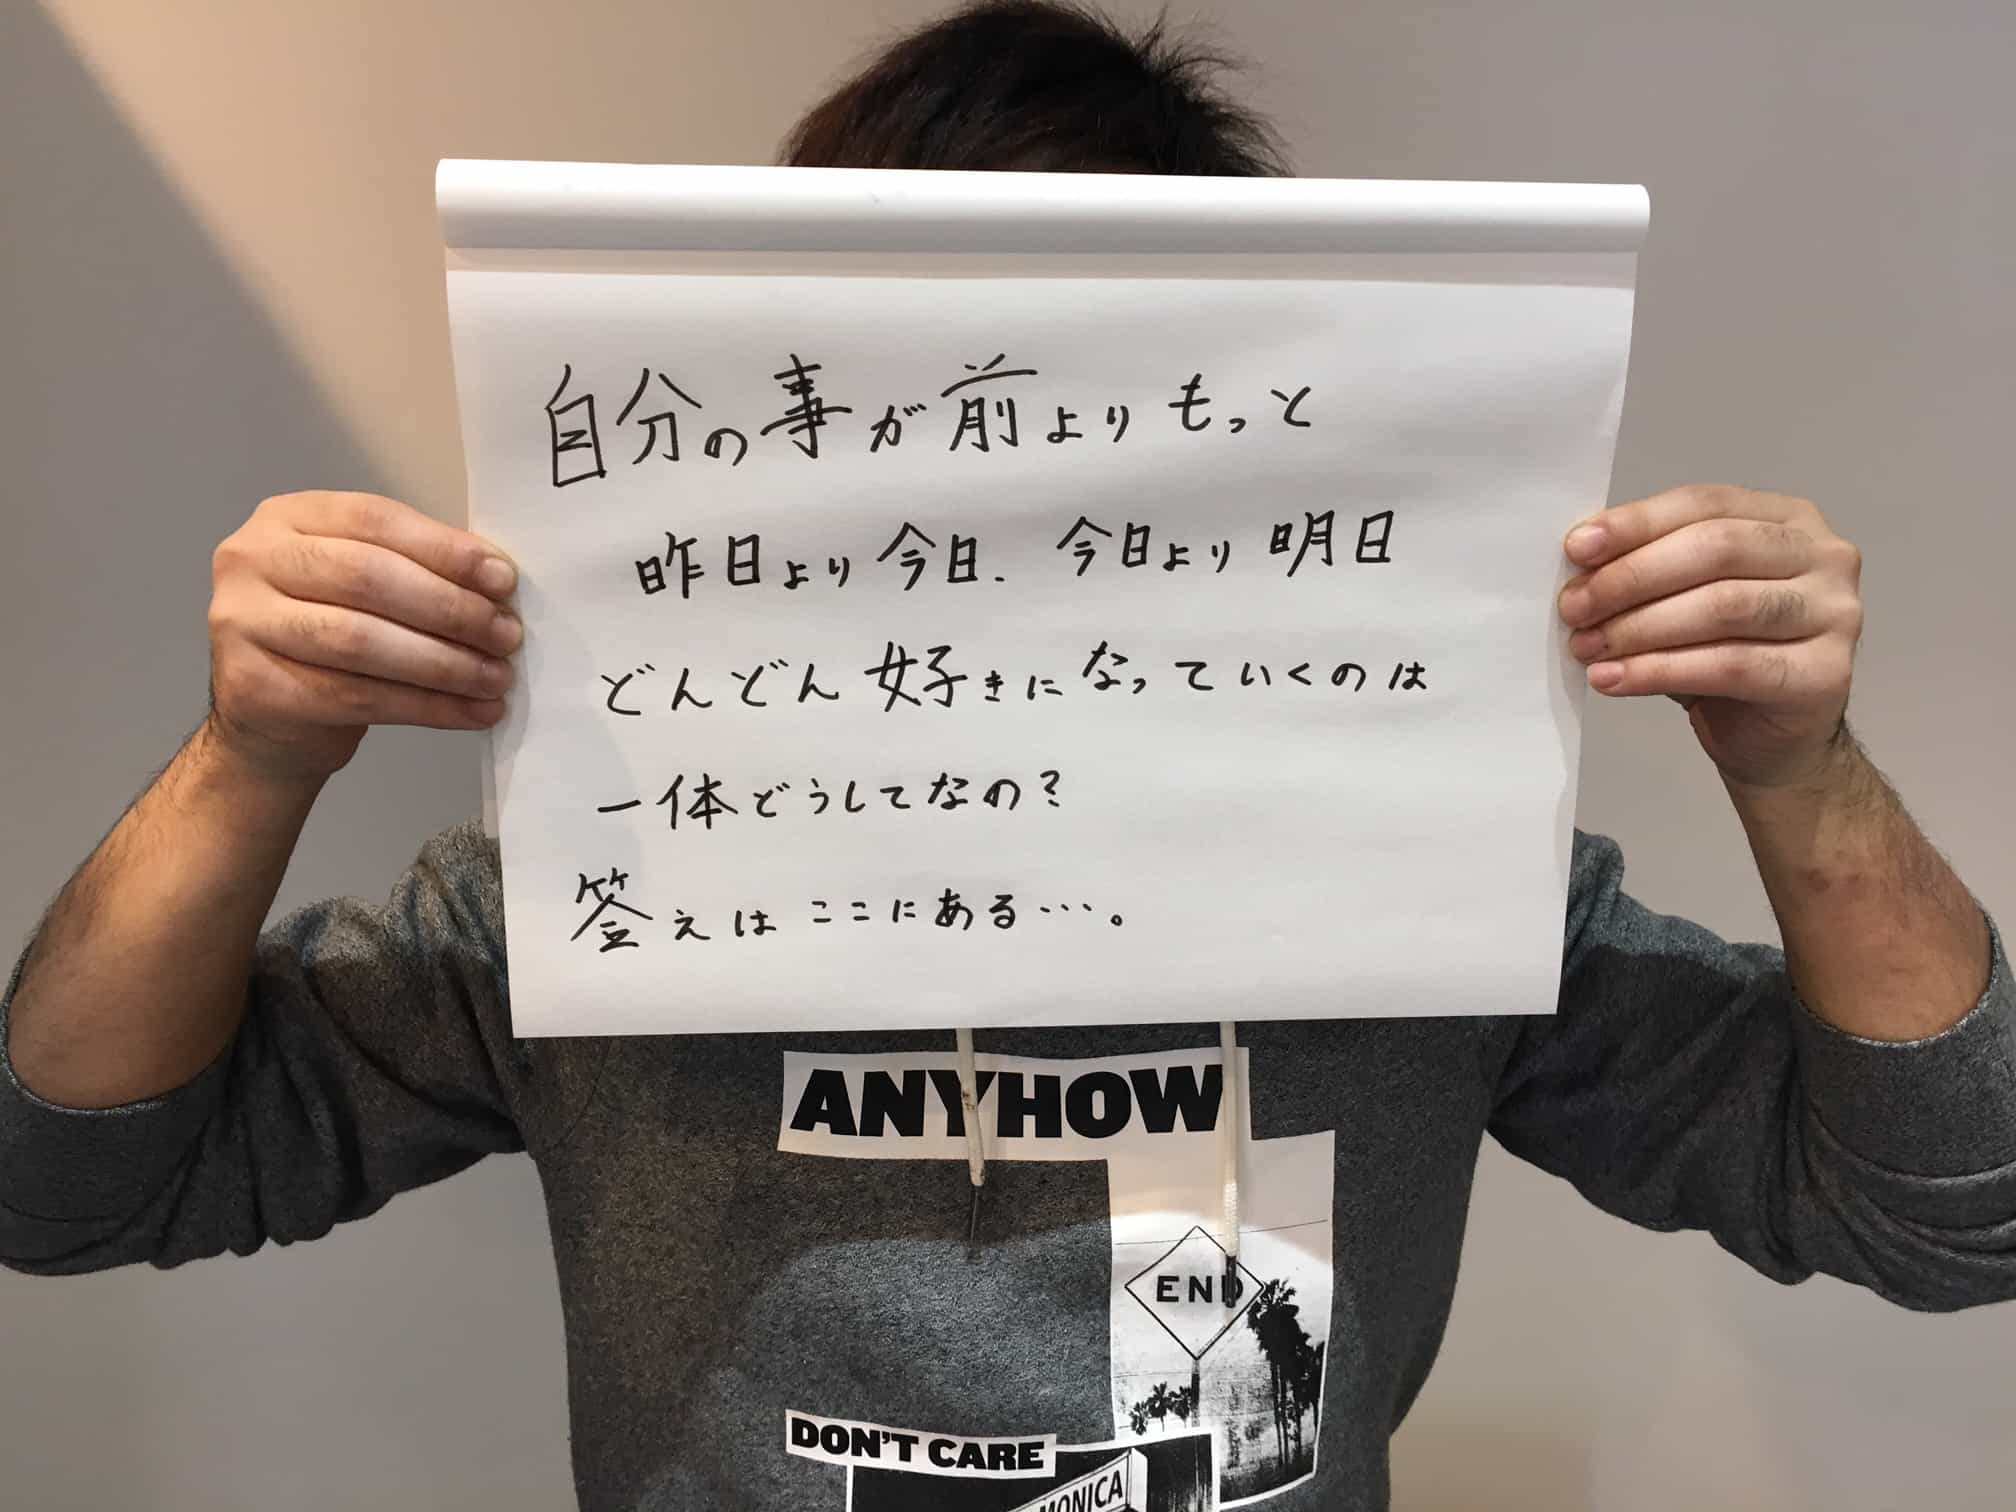 自分の事が前よりもっと
昨日より今日、今日より明日
どんどん好きになっていくのは
一体どうしてなの?
答えはここにある…。
ANYHOW
END
DON'T CARE
MONICA